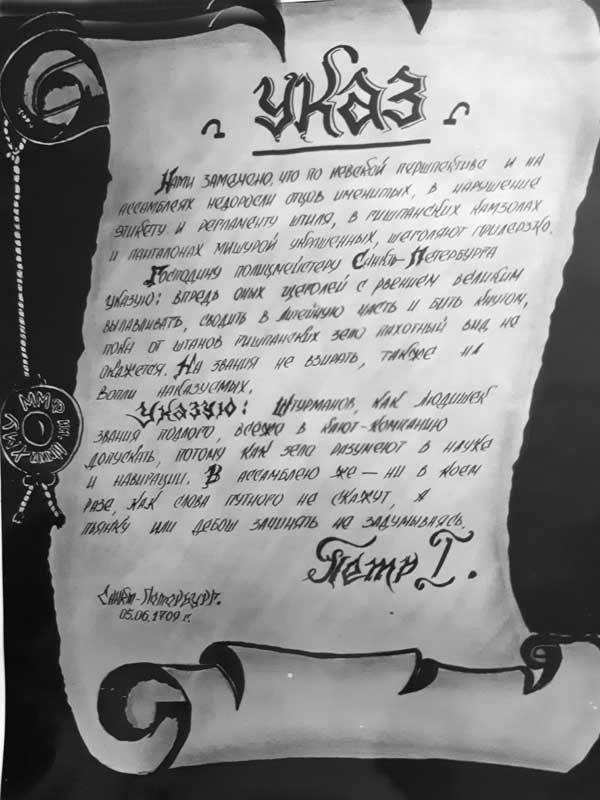 указ
Нами замечено, что по невской першпективе и на
ассамблеях недоросли отцов именитых, в нарушение
этикету и регламенту штиля, в гишпанских камзолах
и панталонах мишурой украшенных, щеголяют прилерзко.
Господину полицмейстеру Санкт-Петербурга
указую: впредь оных щеголей с рвением великим
вылавливать, сводить в литейную часть и бить кнутом,
пока от штанов гишпанских зело пахотный вид не
окажется. На звания не взирать, также на
вопли наказуемых.
Указую: Штурманов, как людишек
звания подлого, всежа в кают-компанию
допускать, потому как зело разумеют в науке
и навигации. В ассамблею же — ни в коем
разе, как слова путного не скажут, а
пьянку или дебош зачинять не задумываясь.
Петр I.
Санкт-Петербург.
05.06.1709 г.
ХМУ ММФ